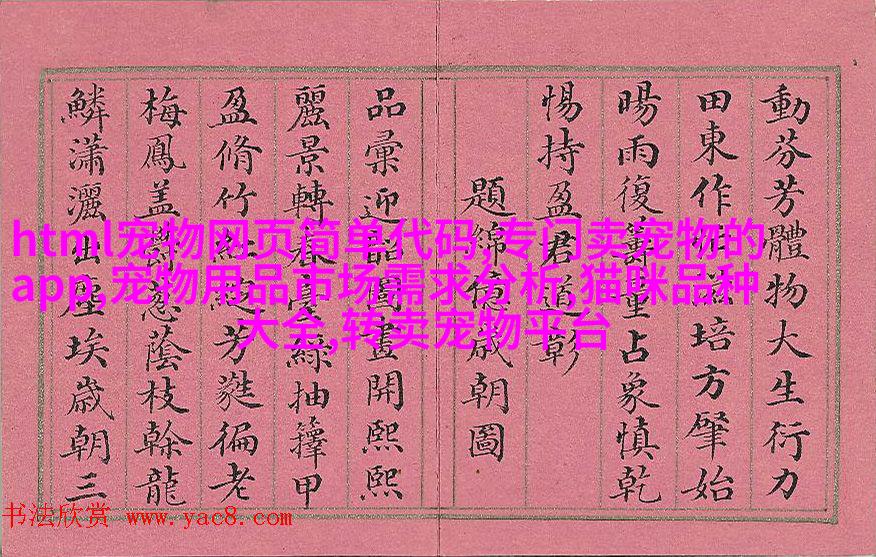 動芬芳體物大生衍力
田東作培方肈始
暘雨復量占象慎乾
惕持盈君道彰
題綿億歲朝圖
品彙迎韶圖畫開熙熙
麗景轉春臺綠抽籜甲
盈脩竹紅綻芳蕤徧老
梅鳳盖欝葱蔭枝榦龍
鱗瀟灑出塵埃歲朝三
html宠物网页简单代码,专门卖宠物的
app,宠物用品市场需求分析,猫咪品种
大全,转卖宠物平台
书法欣赏 www.yac8.com